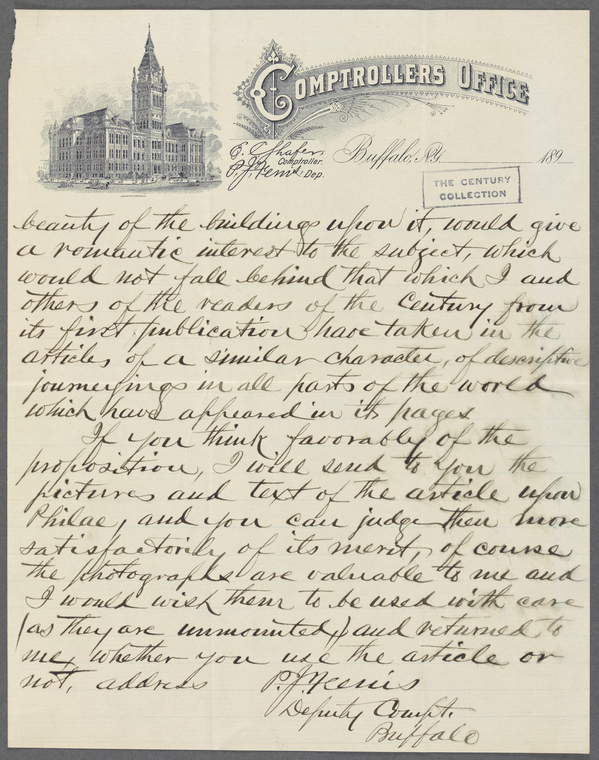 COMPTROLLERS OFFICE
E. C. Shafer, Comptroller.
Dep.
Buffalo, N.Y. 189
THE CENTURY
COLLECTION
beauty of the buildings upon it, would give
a romantic interest to the subject, which
would not fall behind that which I and
others of the readers of the Century from
its first publication have taken in the
articles of a similar character, of descriptive
journeyings in all parts of the world
which have appeared in its pages
If you think favorably of the
proposition, I will send to you the
pictures and text of the article upon
Philae, and you can judge then more
satisfactorily of its merit, of course
the photographs are valuable to me and
I would wish them to be used with care
(as they are unmounted,) and returned to
me, whether you use the article or
not, address P. J.
Deputy Compt.
Buffalo